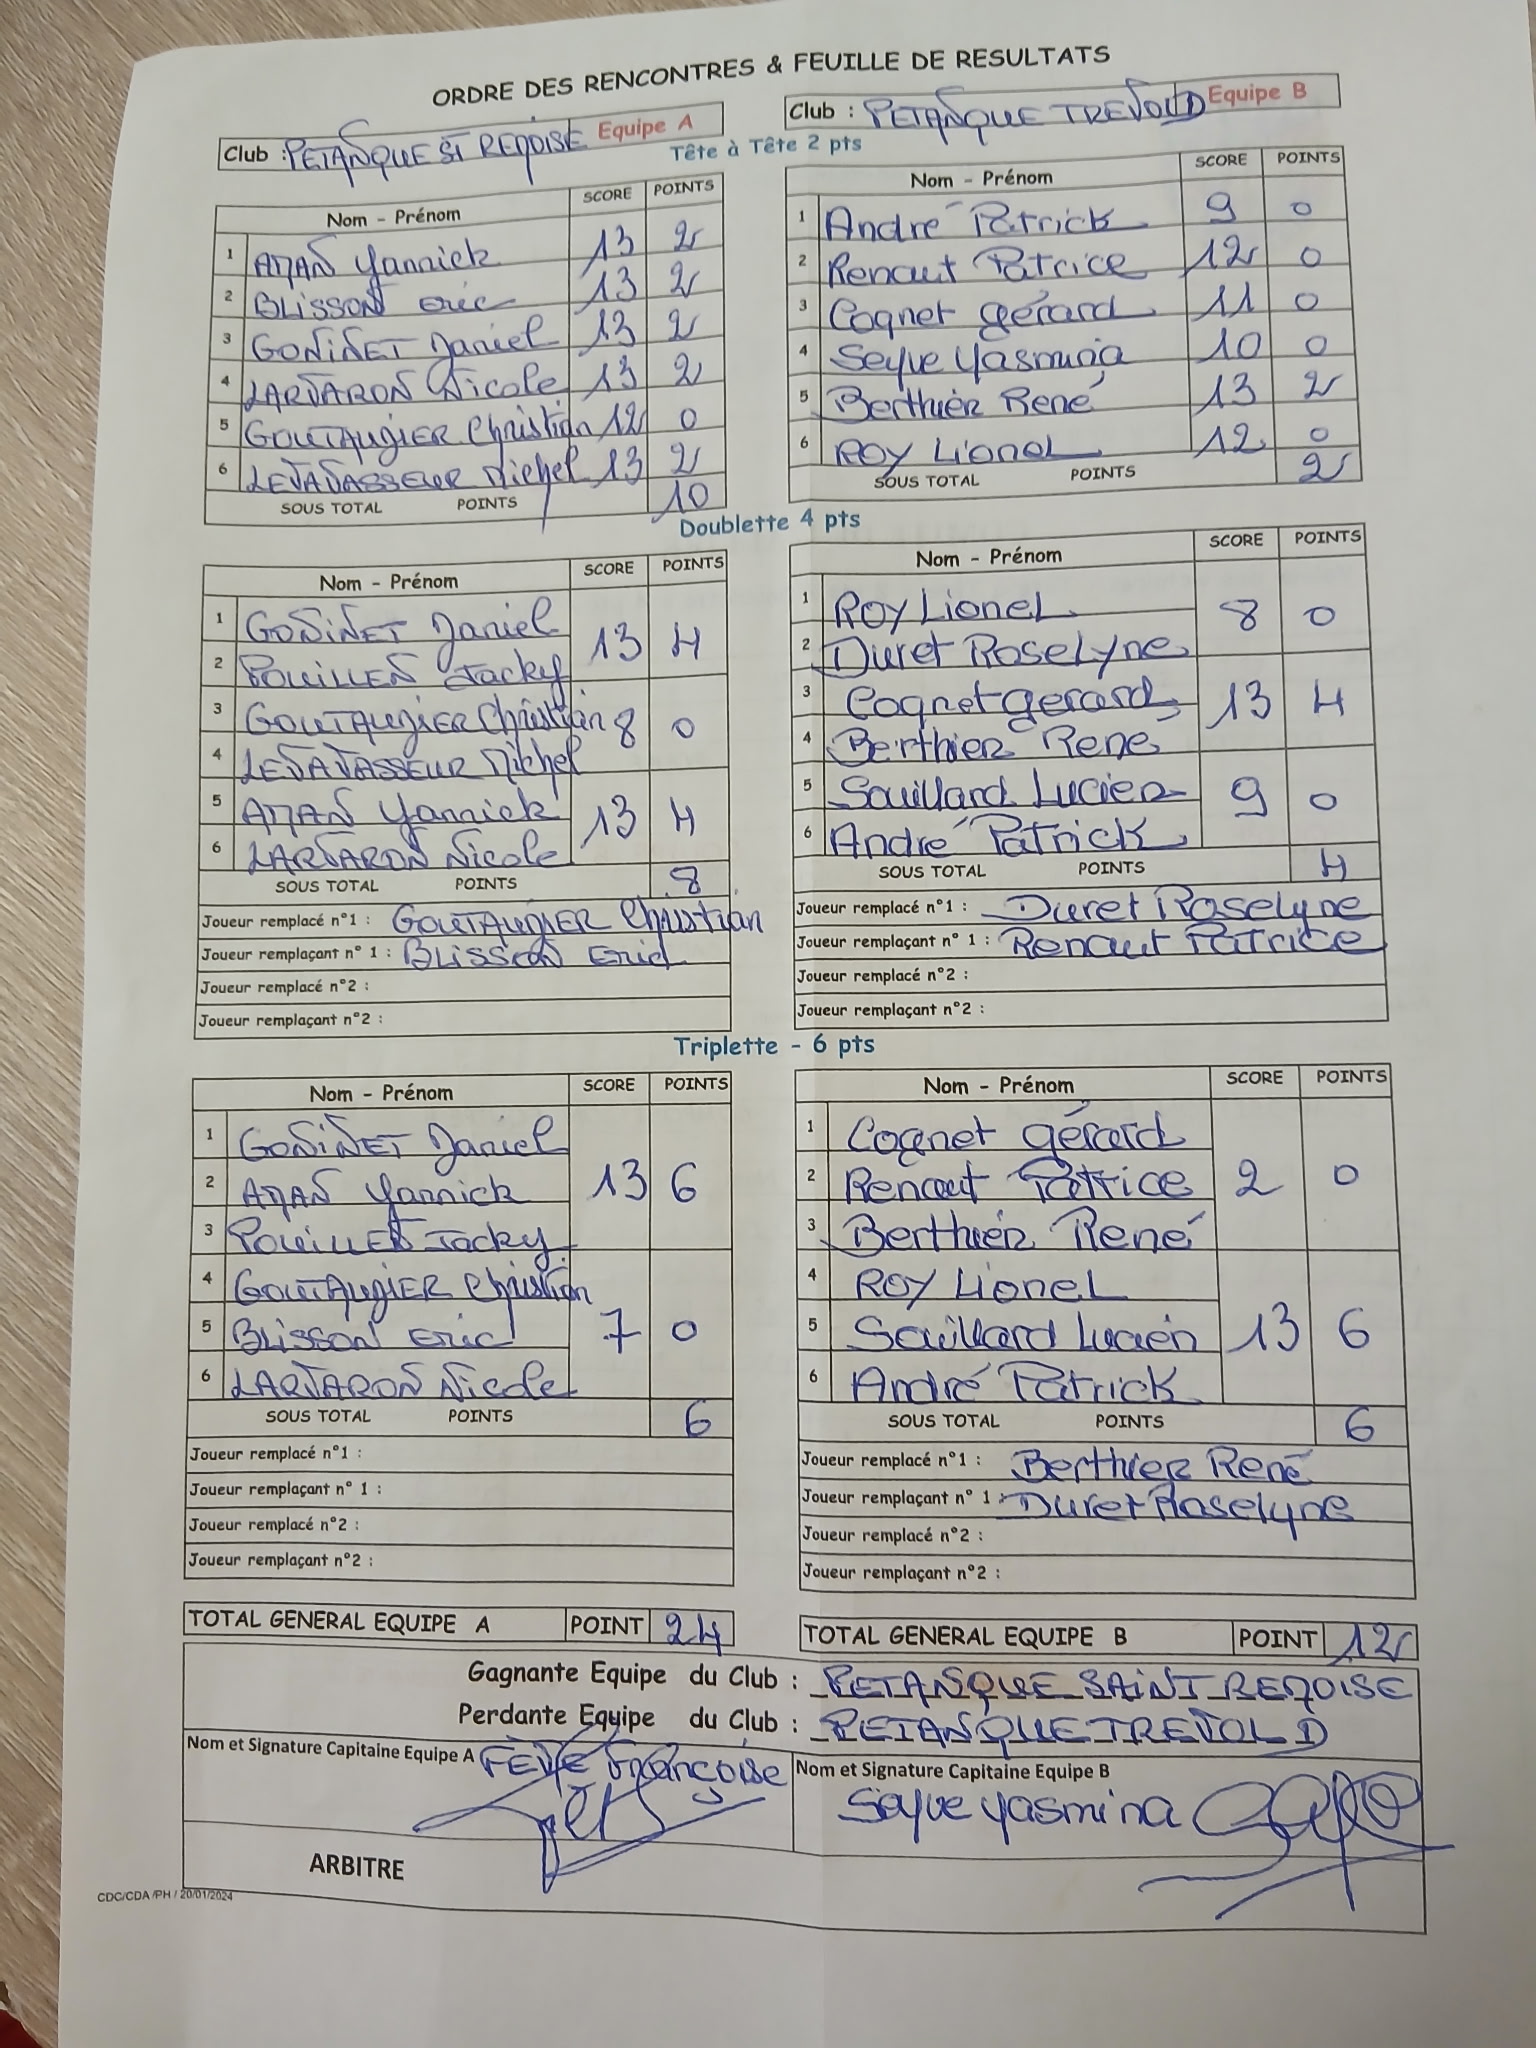 ORDRE DES RENCONTRES & FEUILLE DE RESULTATS
Club : PETANQUE ST REMOISE Equipe A
Club : PETANQUE TREVOL D Equipe B
Tête à Tête 2 pts
Nom - Prénom SCORE POINTS
1 AMAN Yannick 13 2
2 BLISSON Eric 13 2
3 GONINET Daniel 13 2
4 LARVARON Nicole 13 2
5 GOUTAUGIER Christian 12 0
6 LEVAVASSEUR Michel 13 2
SOUS TOTAL POINTS 10
Nom - Prénom SCORE POINTS
1 André Patrick 9 0
2 Renaut Patrice 12 0
3 Cognet gérard 11 0
4 Seyve Yasmina 10 0
5 Berthier René 13 2
6 ROY Lionel 12 0
SOUS TOTAL POINTS 2
Doublette 4 pts
Nom - Prénom SCORE POINTS
1 GONINET Daniel 13 4
2 POUILLEN Jacky
3 GOUTAUGIER Christian 8 0
4 LEVAVASSEUR Michel
5 AMAN Yannick 13 4
6 LARVARON Nicole
SOUS TOTAL POINTS 8
Joueur remplacé n°1 : GOUTAUGIER Christian
Joueur remplaçant n° 1 : BLISSON Eric
Joueur remplacé n°2 :
Joueur remplaçant n°2 :
Nom - Prénom SCORE POINTS
1 ROY Lionel 8 0
2 Duret Roselyne
3 Cognet gerard 13 4
4 Berthier René
5 Souillard Lucien 9 0
6 André Patrick
SOUS TOTAL POINTS 4
Joueur remplacé n°1 : Duret Roselyne
Joueur remplaçant n° 1 : Renaut Patrice
Joueur remplacé n°2 :
Joueur remplaçant n°2 :
Triplette - 6 pts
Nom - Prénom SCORE POINTS
1 GONINET Daniel
2 AMAN Yannick 13 6
3 POUILLEN Jacky
4 GOUTAUGIER Christian
5 BLISSON Eric 7 0
6 LARVARON Nicole
SOUS TOTAL POINTS 6
Joueur remplacé n°1 :
Joueur remplaçant n° 1 :
Joueur remplacé n°2 :
Joueur remplaçant n°2 :
Nom - Prénom SCORE POINTS
1 Cognet gérard
2 Renaut Patrice 2 0
3 Berthier René
4 ROY Lionel
5 Souillard Lucien 13 6
6 André Patrick
SOUS TOTAL POINTS 6
Joueur remplacé n°1 : Berthier René
Joueur remplaçant n° 1 : Duret Roselyne
Joueur remplacé n°2 :
Joueur remplaçant n°2 :
TOTAL GENERAL EQUIPE A POINT 24
TOTAL GENERAL EQUIPE B POINT 12
Gagnante Equipe du Club : PETANQUE SAINT REMOISE
Perdante Equipe du Club : PETANQUE TREVOL D
Nom et Signature Capitaine Equipe A FEVE Françoise
Nom et Signature Capitaine Equipe B
Seyve yasmina
ARBITRE
CDC/CDA /PH / 20/01/2024